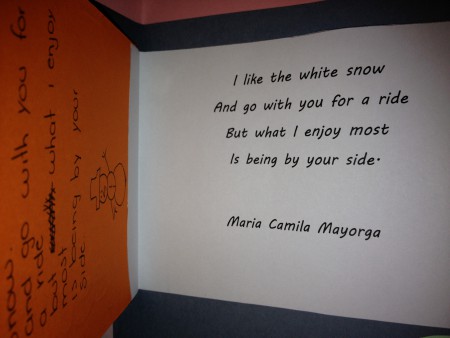 snow.
and go with you for
a ride
but what I enjoy
most
is being by your
side
I like the white snow
And go with you for a ride
But what I enjoy most
Is being by your side.
Maria Camila Mayorga